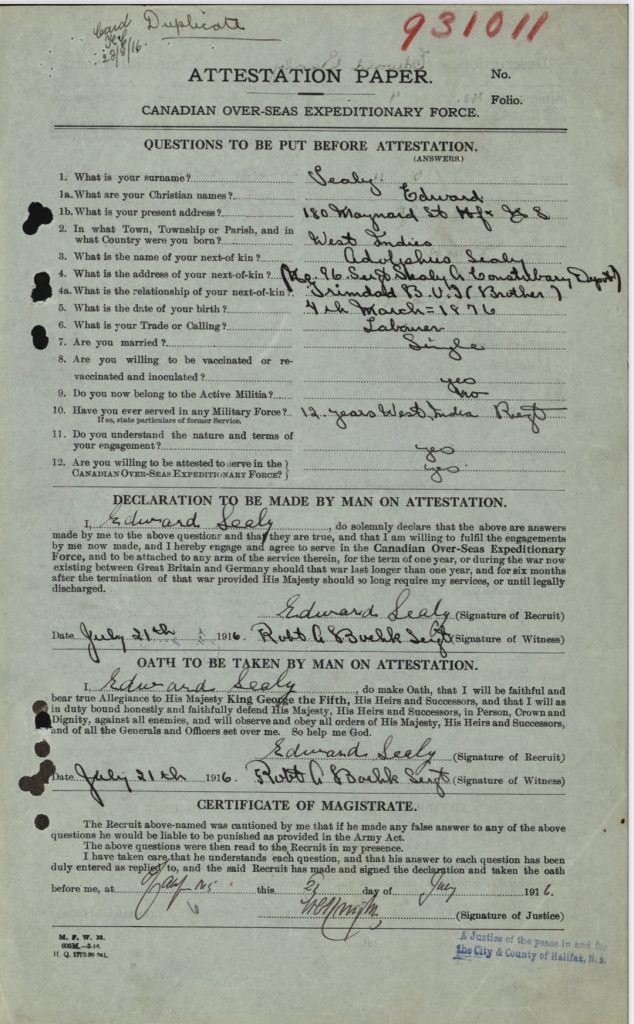 Card Duplicate
28/8/16.
931011
ATTESTATION PAPER.
No.
Folio.
CANADIAN OVER-SEAS EXPEDITIONARY FORCE.
QUESTIONS TO BE PUT BEFORE ATTESTATION.
(ANSWERS.)
1. What is your surname? Sealy
1a. What are your Christian names? Edward
1b. What is your present address? 180 Maynard St Hfx N S
2. In what Town, Township or Parish, and in
what Country were you born? West Indies
3. What is the name of your next-of kin? Adolphus Sealy
4. What is the address of your next-of-kin? Sergt Sealy A Constabury Depot
4a. What is the relationship of your next-of-kin? Trinidad B.W.I (Brother)
5. What is the date of your birth? 4th March = 1876
6. What is your Trade or Calling? Labourer
7. Are you married? Single
8. Are you willing to be vaccinated or re-
vaccinated and inoculated? yes
9. Do you now belong to the Active Militia? no
10. Have you ever served in any Military Force? 12 years West India Regt
If so, state particulars of former Service.
11. Do you understand the nature and terms of
your engagement? yes
12. Are you willing to be attested to serve in the
CANADIAN OVER-SEAS EXPEDITIONARY FORCE? yes
DECLARATION TO BE MADE BY MAN ON ATTESTATION.
I, Edward Sealy, do solemnly declare that the above are answers
made by me to the above questions and that they are true, and that I am willing to fulfil the engagements
by me now made, and I hereby engage and agree to serve in the Canadian Over-Seas Expeditionary
Force, and to be attached to any arm of the service therein, for the term of one year, or during the war now
existing between Great Britain and Germany should that war last longer than one year, and for six months
after the termination of that war provided His Majesty should so long require my services, or until legally
discharged.
Edward Sealy (Signature of Recruit)
Date July 21th 1916. Robt A Sergt (Signature of Witness)
OATH TO BE TAKEN BY MAN ON ATTESTATION.
I, Edward Sealy, do make Oath, that I will be faithful and
bear true Allegiance to His Majesty King George the Fifth, His Heirs and Successors, and that I will as
in duty bound honestly and faithfully defend His Majesty, His Heirs and Successors, in Person, Crown and
Dignity, against all enemies, and will observe and obey all orders of His Majesty, His Heirs and Successors,
and of all the Generals and Officers set over me. So help me God.
Edward Sealy (Signature of Recruit)
Date July 21th 1916. Robt A Sergt (Signature of Witness)
CERTIFICATE OF MAGISTRATE.
The Recruit above-named was cautioned by me that if he made any false answer to any of the above
questions he would be liable to be punished as provided in the Army Act.
The above questions were then read to the Recruit in my presence.
I have taken care that he understands each question, and that his answer to each question has been
duly entered as replied to, and the said Recruit has made and signed the declaration and taken the oath
before me, at this 21 day of July 1916.
(Signature of Justice)
M. F. W. 23.
A Justice of the peace in and for
the City & County of Halifax, N. S.